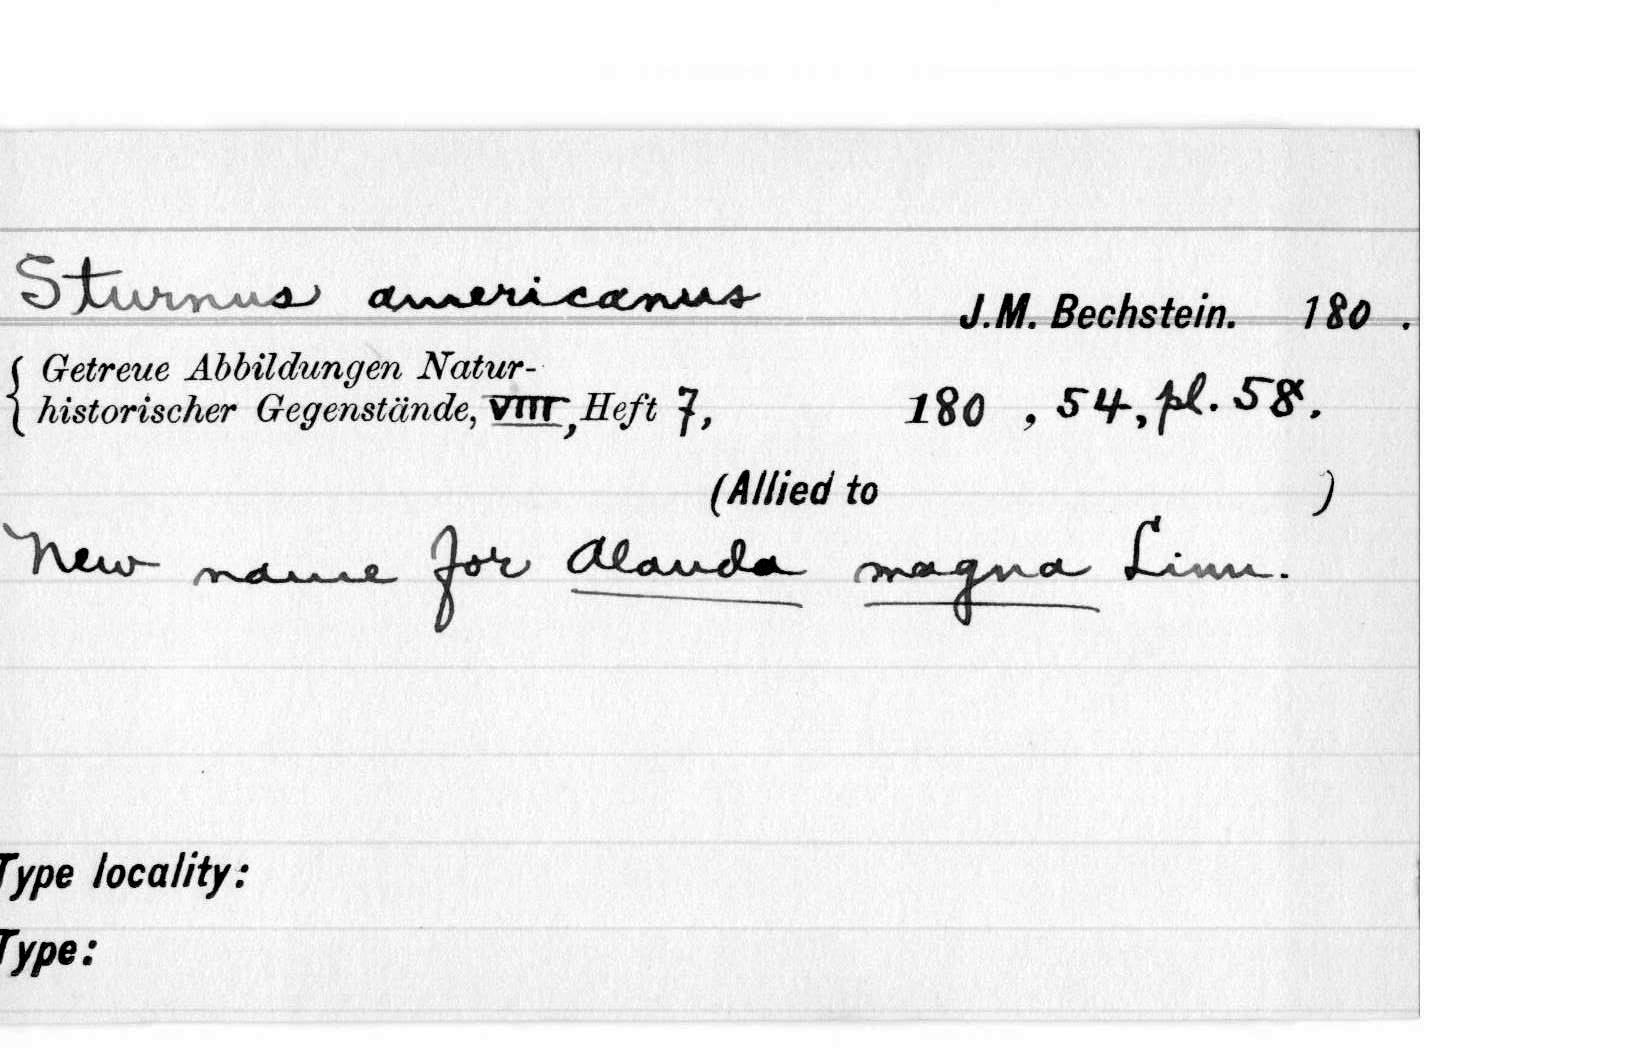 Sturnus americanus J.M. Bechstein. 180 .
Getreue Abbildungen Natur-
historischer Gegenstände, VIII, Heft 7, 180 , 54, pl. 58.
(Allied to )
New name for Alauda magna Linn.
Type locality:
Type: